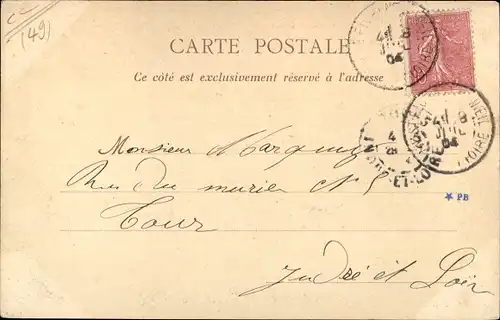 (49)
CARTE POSTALE
Ce côté est exclusivement réservé à l'adresse
LOIRE
8
JUIL
04
LOIRE
ET-LOIRE
Monsieur
Rue du murier N° 5
PB
Tour
Indre et Loir